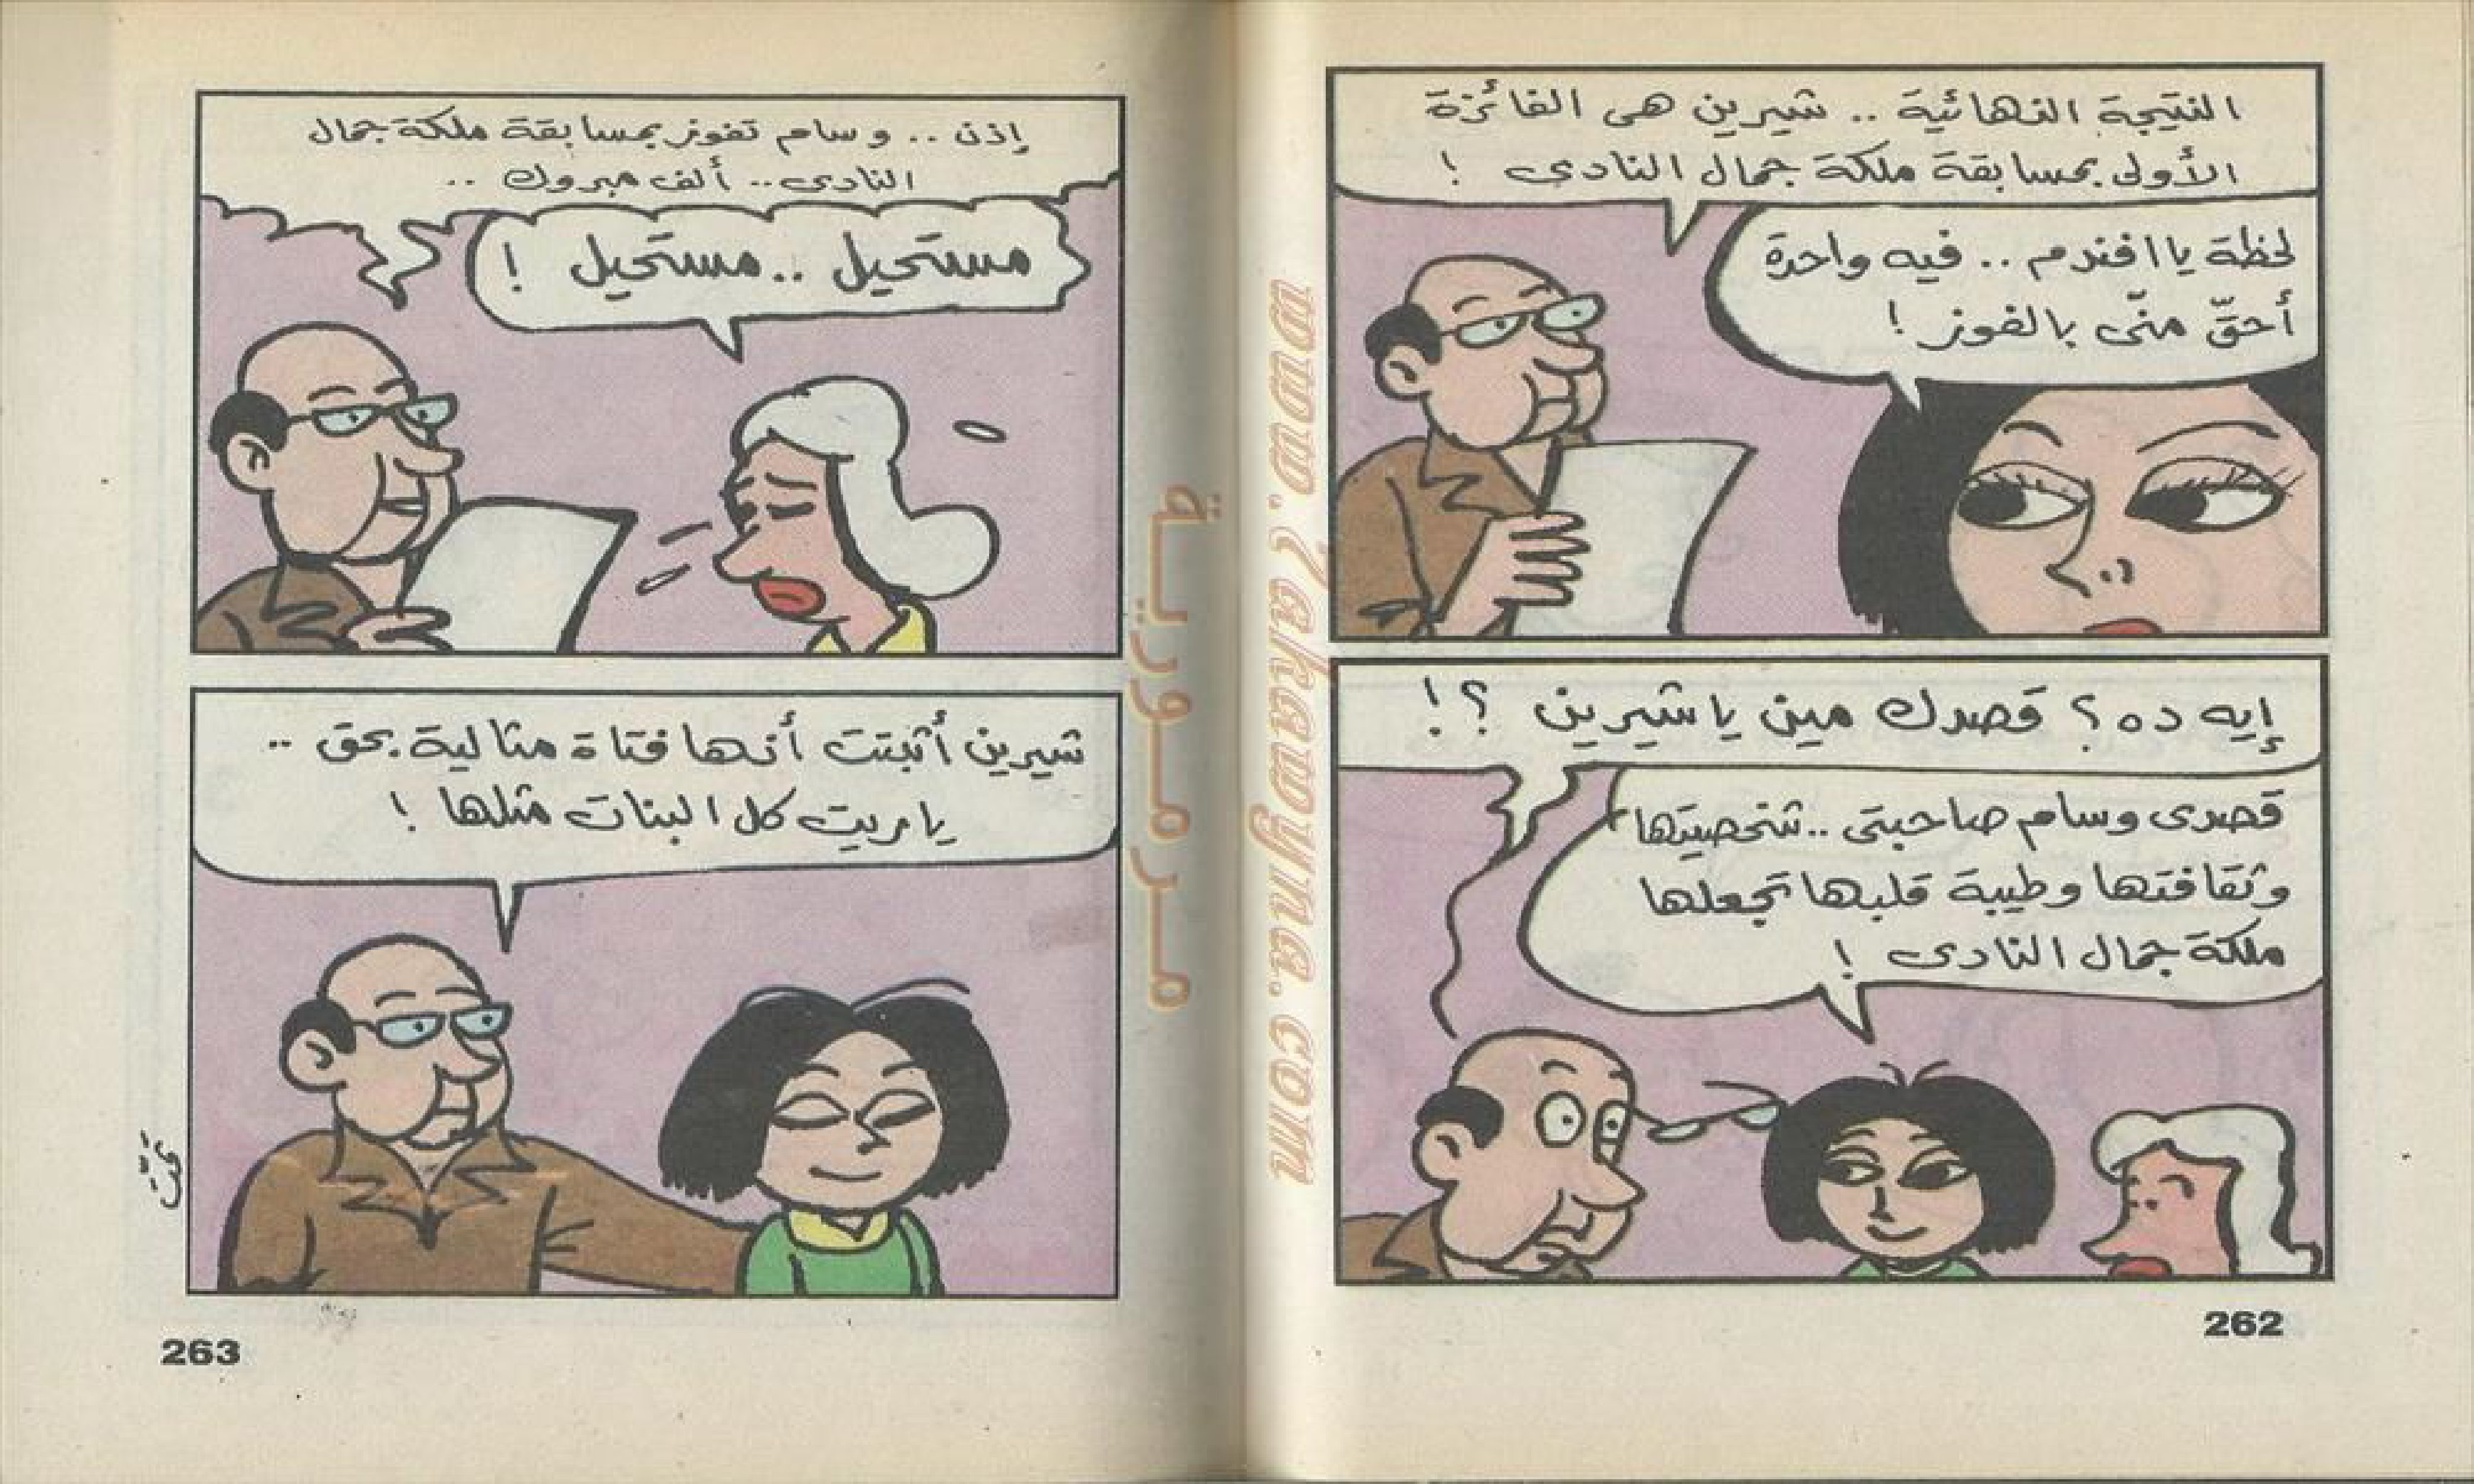 النتيجة النهائية .. شيرين هى الفائزة
الأولى بمسابقة ملكة جمال النادى !
لحظة يا افندم .. فيه واحدة
أحقّ منّى بالفوز !
إيه ده ؟ قصدك مين يا شيرين ؟!
قصدى وسام صاحبتى .. شخصيتها
وثقافتها وطيبة قلبها تجعلها
ملكة جمال النادى !
262
www.7akawyna.com
مرمورية
إذن .. وسام تفوز بمسابقة ملكة جمال
النادى .. ألف مبروك ..
مستحيل .. مستحيل !
شيرين أثبتت أنها فتاة مثالية بحق ..
ياريت كل البنات مثلها !
تمت
263